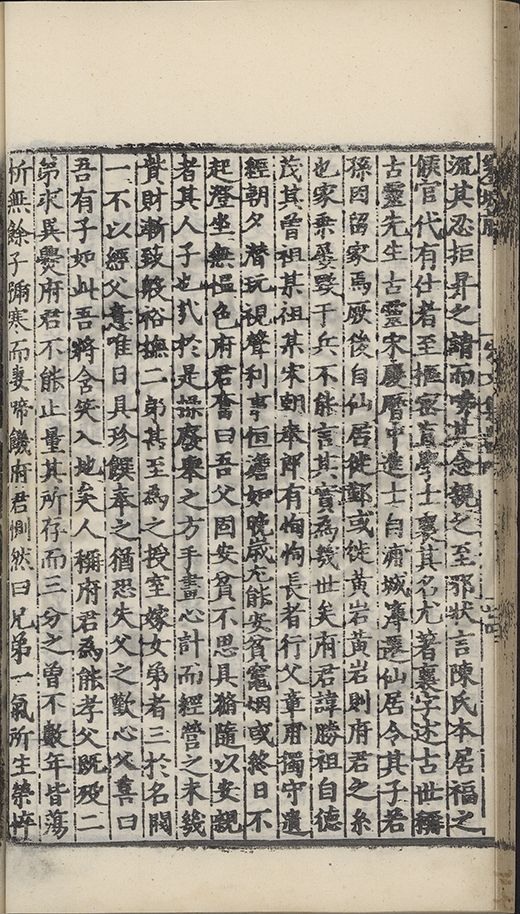 沠其忍拒昇之請而嘑其念親之至耶狀言陳氏本居福之
候官代有仕者至樞密直學士襄其名尤著襄字述古世稱
古靈先生古靈宋慶曆中進士自浦城簿遷仙居令其子若
孫因留家焉厥後自仙居徙鄞或徙黃岩黃岩則府君之系
也家乗燬于兵不能言其實為幾世矣府君諱勝祖自德
茂其曾祖某祖某宋朝奉郎有恂恂長者行父章甫獨守遺
經朝夕潛玩視聲利事恒澹如晚歲尤能安貧竈烟或終日不
起澄坐無慍色府君奮曰吾父固安貧不思具脩隨以安親
者其人子也㢤於是操廢舉之方手畫心計而經營之未幾
貲財漸致殷裕撫二弟甚至為之授室嫁女弟者三於名閥
一不以經父意唯日具珍饌奉之猶恐失父之歡心父喜曰
吾有子如此吾將含笑入地矣人稱府君為能孝父既歿二
弟求異爨府君不能止量其所存而三分之曾不數年皆蕩
析無餘子號寒而妻啼饑府君惻然曰兄弟一氣所生榮悴